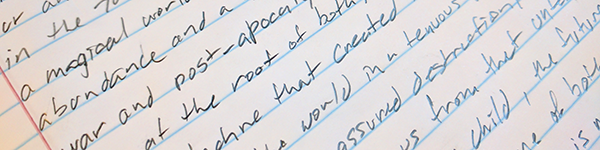 ur an
in the
a magical worl
abundance and a
war and post-apocal
at the root of both
chine that created
the world in a tenuous
assured destruction,
us from that unt
child, the future
one of both
is n